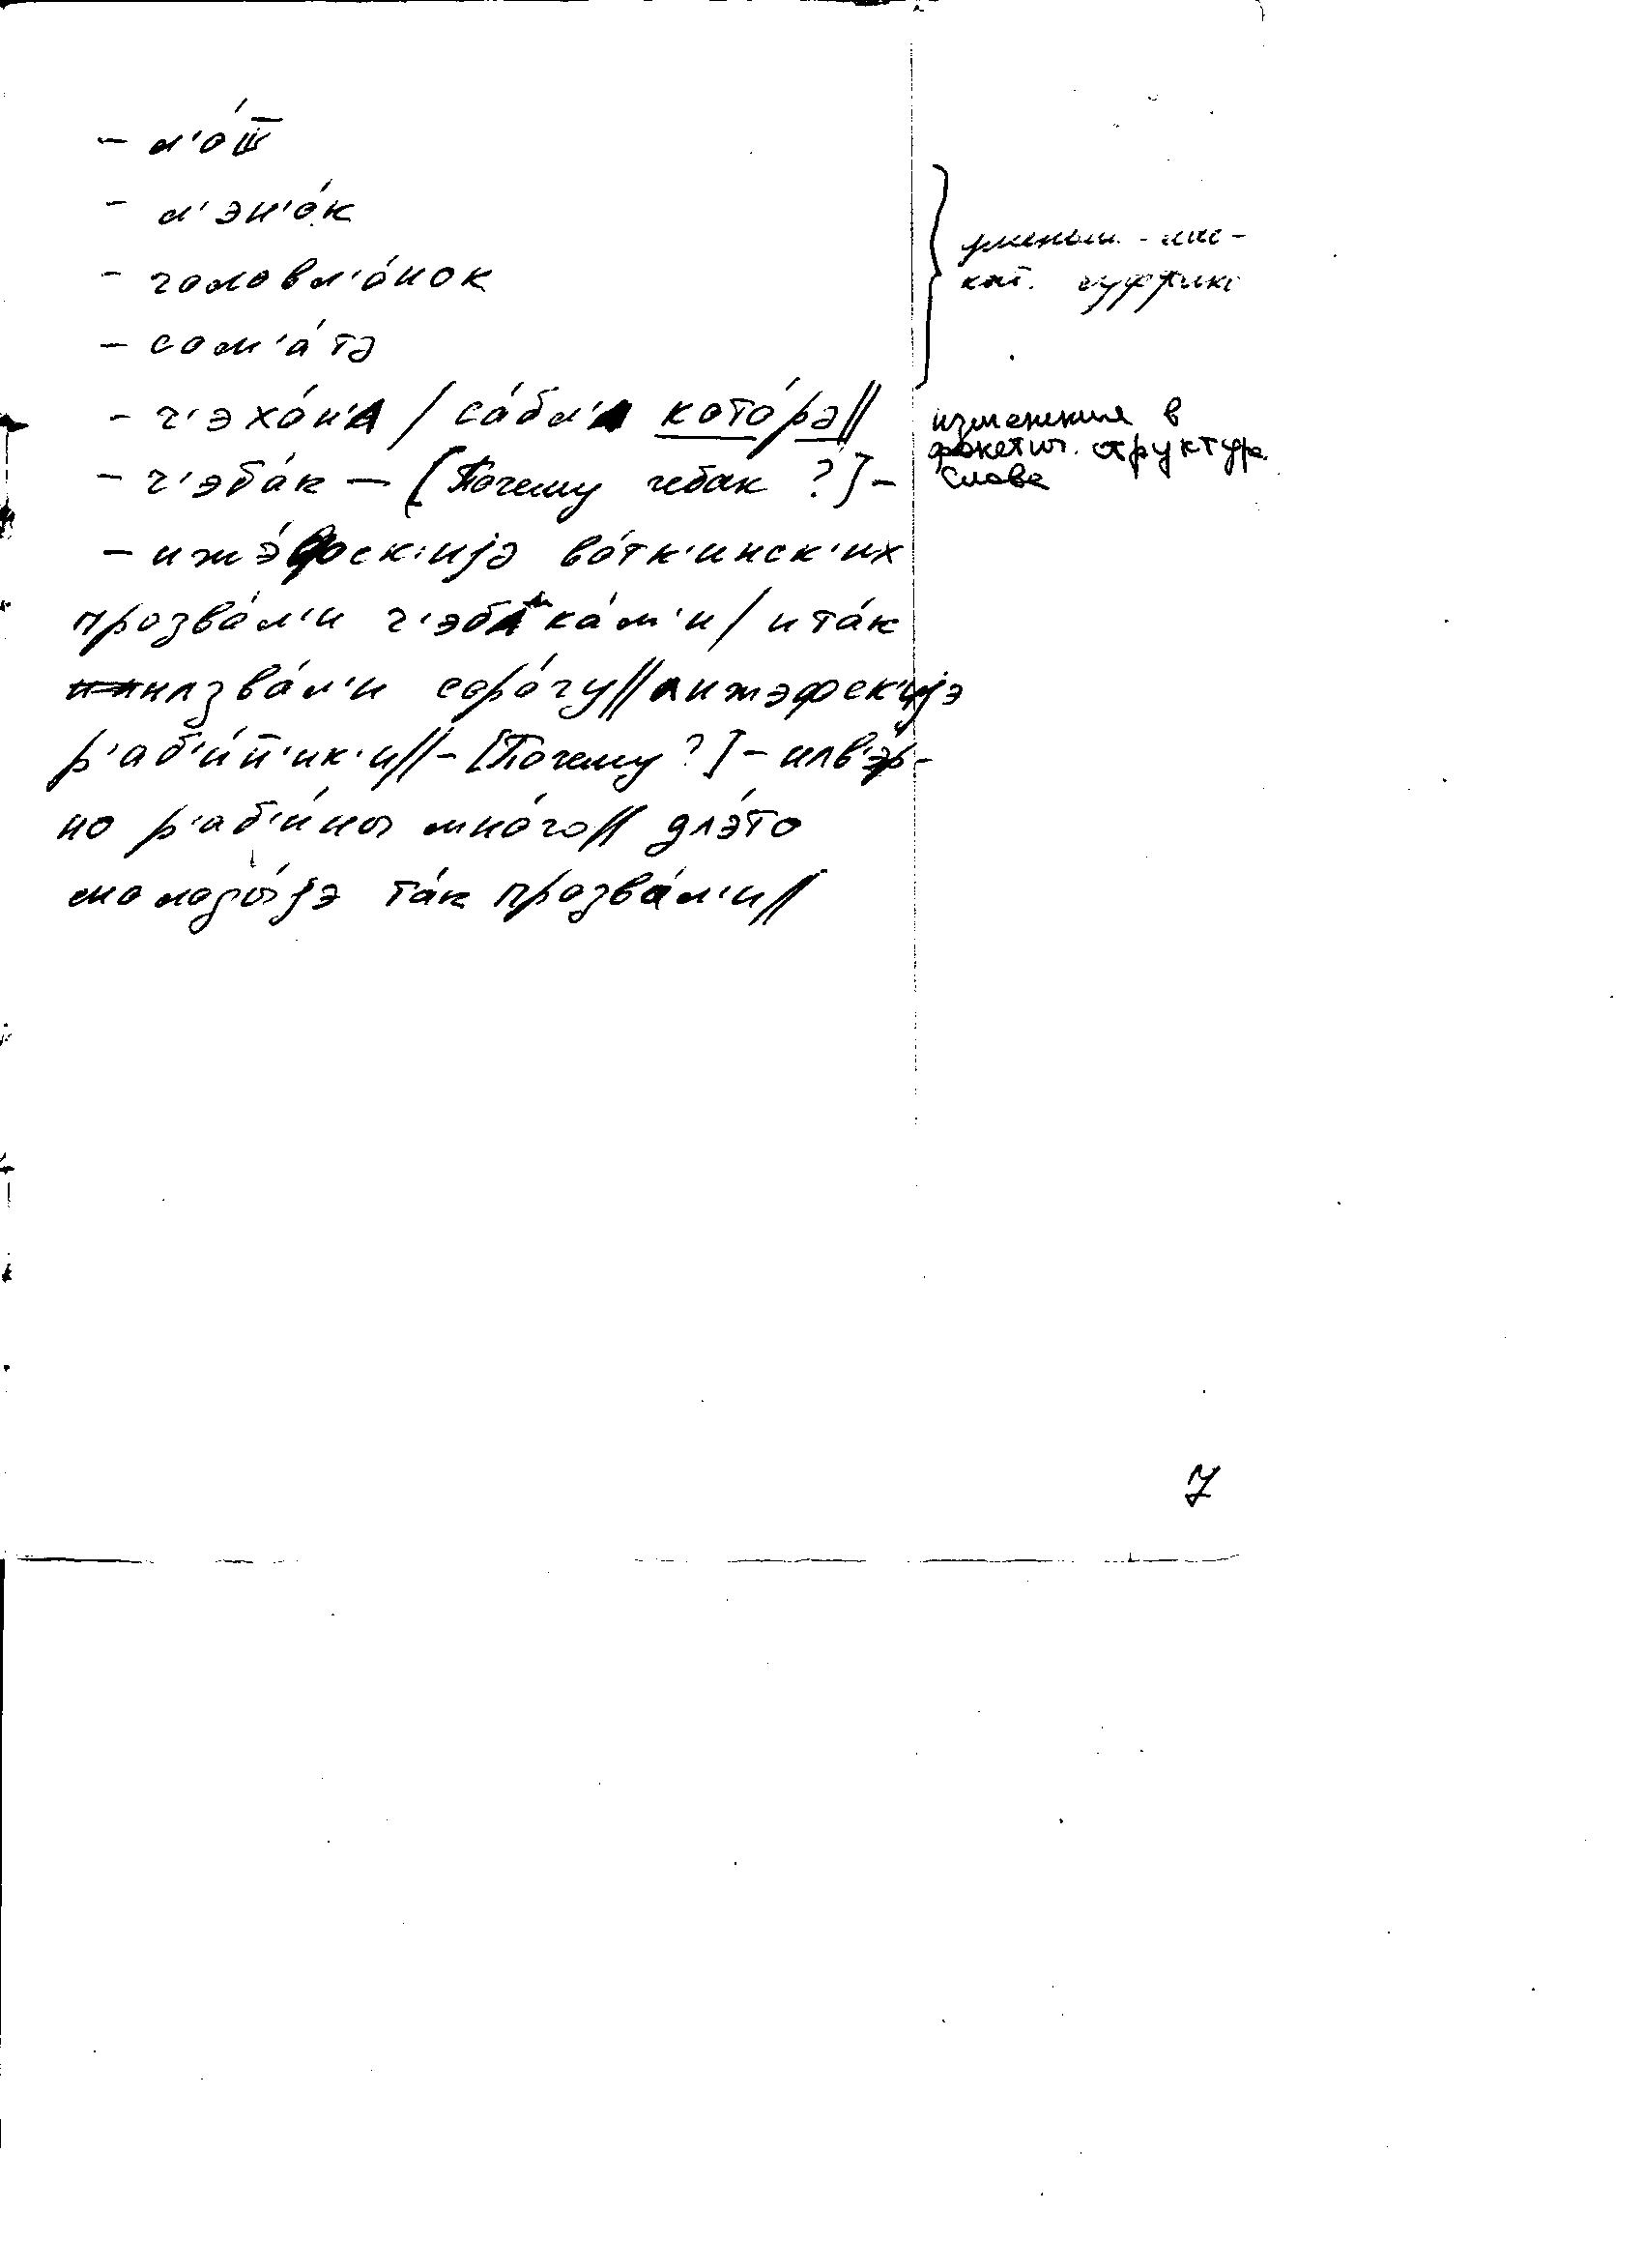 – л'о́ш̅
– л'эн'о́к
– головл'о́нок
– сом'а́тэ
– ч'эхо́н'ʌ / са́бл'ʌ кото́рэ//
– ч'эба́к – [Почему чебак?] –
– ижэ́фск'иjэ во́тк'инск'их
прозва́л'и ч'эбʌка́м'и / и та́к
нʌзва́л'и соро́гу// ʌ ижэфск'иjэ
р'аб'и́н'ик'и// – [Почему?] – нʌв'э́р-
но р'аб'и́ны мно́го// длэ́то
молоды́jэ та́к прозва́л'и//
уменьш.-лас-
кат. суффикс
изменения в
фонетич. структуре
слова
7